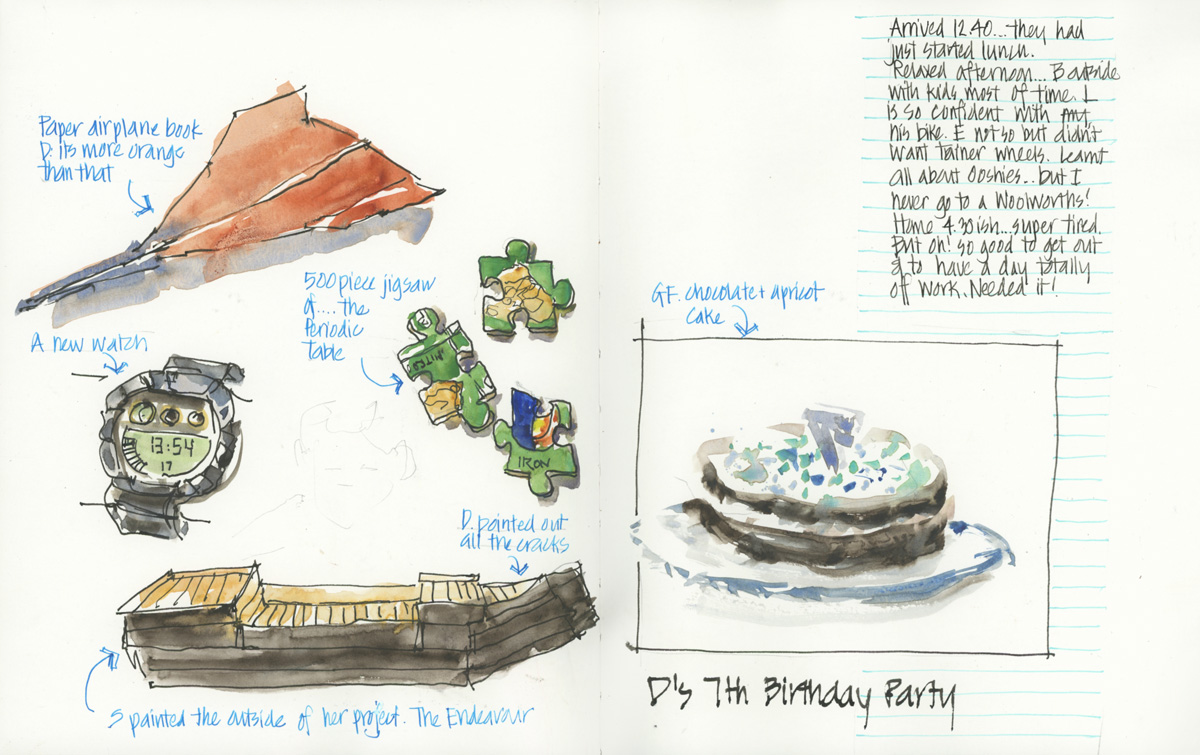 Paper airplane book
D: its more orange
than that
A new watch
13:54
17
500 piece jigsaw
of.... the
Periodic
Table
IRON
D. pointed out
all the cracks
S painted the outside of her project. The Endeavour
Arrived 12.40...they had
just started lunch.
Relaxed afternoon... B outside
with kids most of time. L
is so confident with
his bike. E not so but didn't
want tainer wheels. Learnt
all about Ooshies..but I
never go to a Woolworths!
Home 4.30ish...super tired.
But oh! so good to get out
& to have a day totally
of work. Needed it!
GF. chocolate + apricot
cake
7
D's 7th Birthday Party